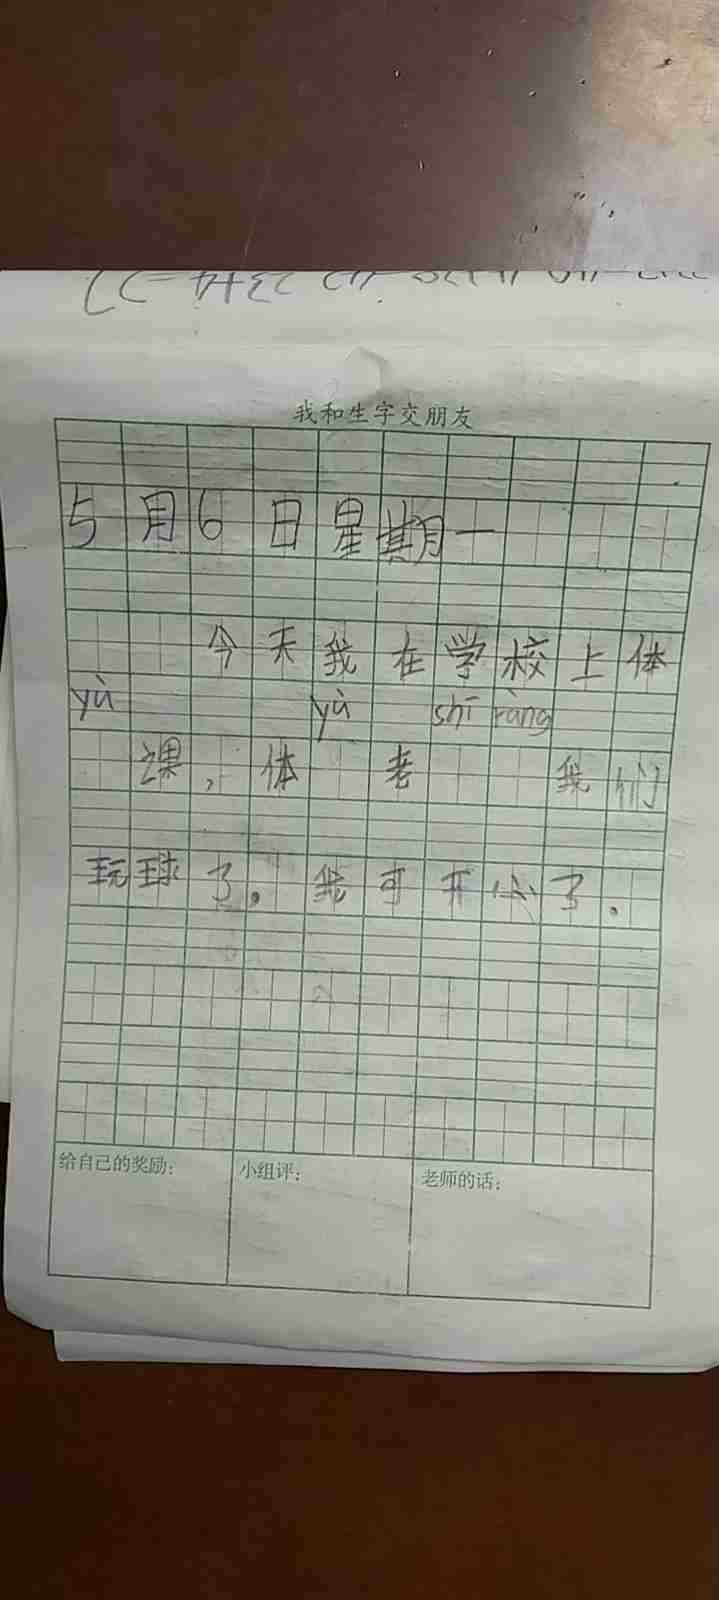 我和生字交朋友
5月6日星期一
今天我在学校上体
yù yù shī ràng
课，体 老 我们
玩球了。我可开心了.
给自己的奖励: 小组评: 老师的话: